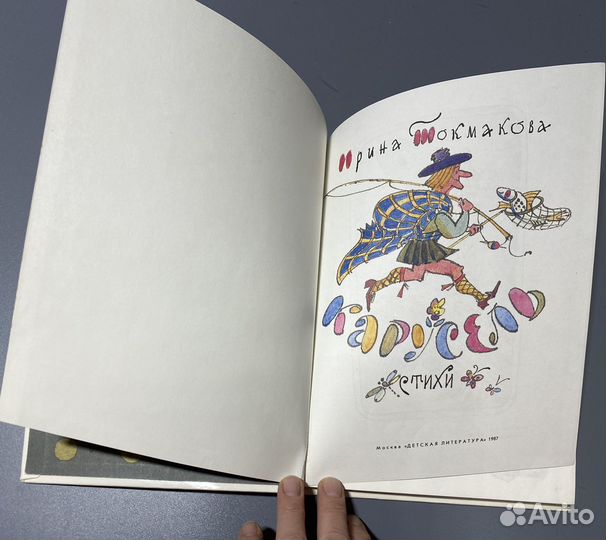 Ирина Токмакова
Карусель
стихи
Москва «ДЕТСКАЯ ЛИТЕРАТУРА» 1987
Avito